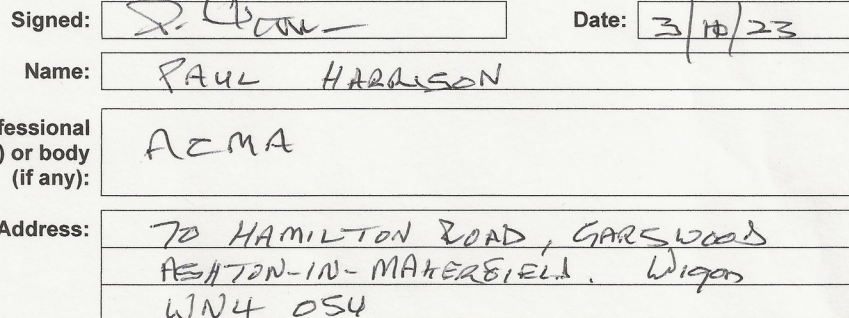 Signed:
Date: 3/10/23
Name: PAUL HARRISON
fessional
) or body
(if any):
ACMA
Address: 70 HAMILTON ROAD, GARSWOOD
ASHTON-IN-MAKERFIELD. Wigan
WN4 0SU